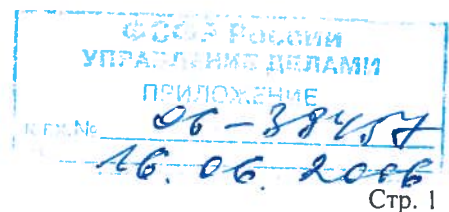 ФСФР России
УПРАВЛЕНИЕ ДЕЛАМИ
ПРИЛОЖЕНИЕ
к вх.№ 06-38457
16.06.2006
Стр. 1